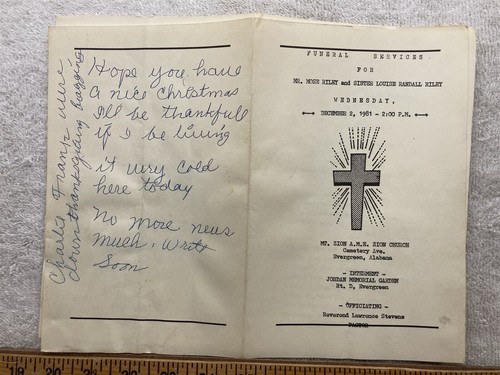 Hope you have
a nice Christmas
I'll be thankfull
if I be living
it very cold
here today
No more news
much. Write
Soon
Charlie Frank were
down thanksgiving
FUNERAL SERVICES
FOR
MR. MOSE RILEY and SISTER LOUISE RANDALL RILEY
WEDNESDAY,
DECEMBER 2, 1981 - 2:00 P.M.
MT. ZION A.M.E. ZION CHURCH
Cemetery Ave.
Evergreen, Alabama
- INTERMENT -
JORDAN MEMORIAL GARDEN
Rt. D, Evergreen
- OFFICIATING -
Reverend Lawrence Stevens
PASTOR
19 20 21 22 23 24 25 26 27 28